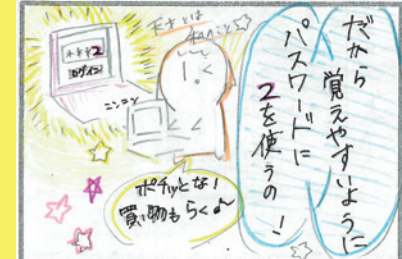 だから
覚えやすいように
パスワードに
2を使うの！
天才とは
私のこと☆
＊＊＊2
ログイン
ニンマリ
ポチッとな！
買い物もらくよ〜